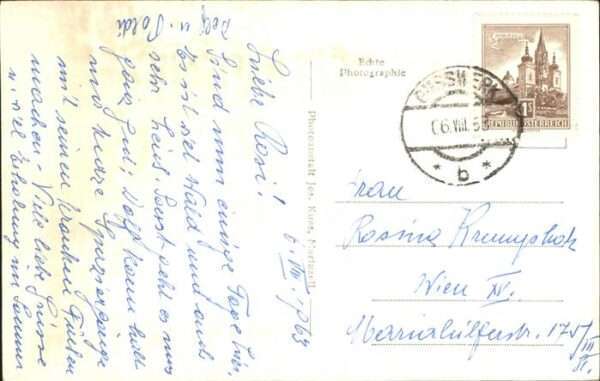 6. VIII. 1963
Liebe Resi!
Sind nun einige Tage hier.
Es ist viel Wald und auch
sehr heiss. Sonst geht es uns
ganz gut; Dolf kann halt
nur kurze Spaziergänge
mit seinen kranken Füßen
machen. Viele liebe Grüsse
u. viel Erholung im Sommer
Dolf u. Poldi
Photoanstalt Jos. Kuss, Mariazell
Echte
Photographie
REPUBLIK ÖSTERREICH
1S
-6.VIII.
* b *
Frau
Rosina
Wien XV.
Mariahilferstr. 175/III